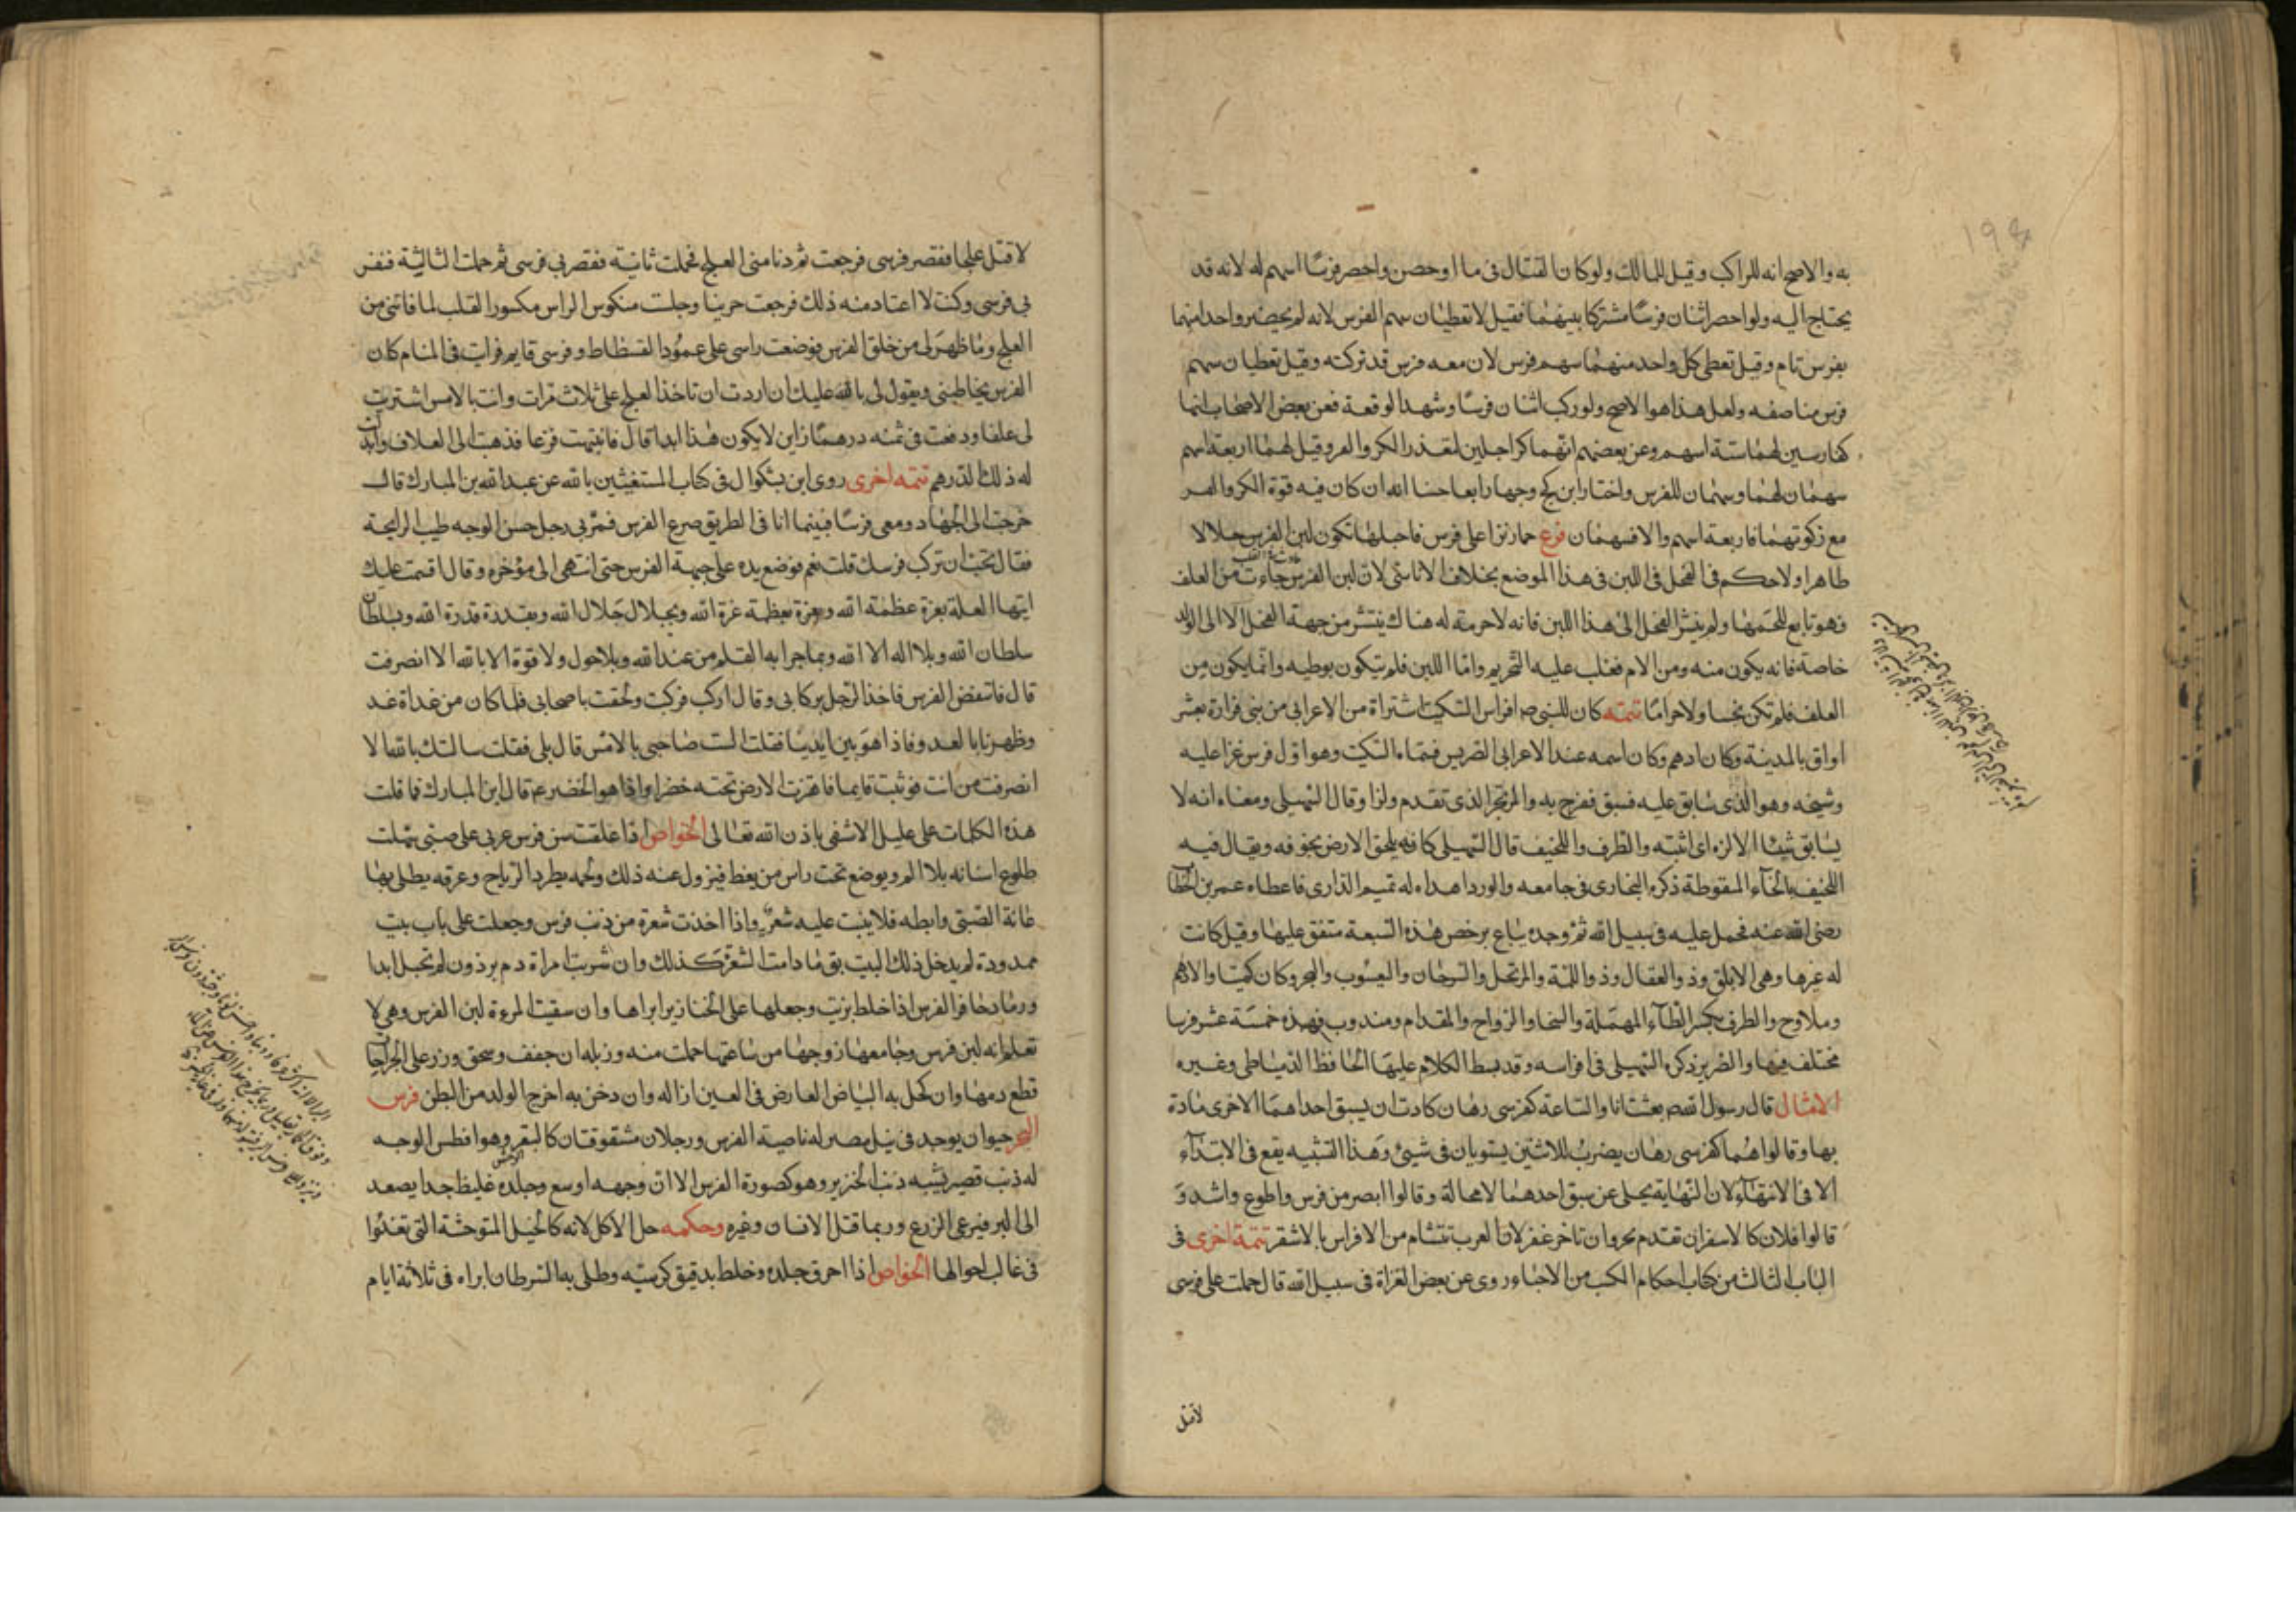 به والاصح انه للراكب وقيل للمالك ولو كان القتال فى ماا وحصن واحضر فرسًا اسهم له لانه قد
يحتاج اليه ولو احضر اثنان فرسًا مشتركا بينهما فقيل لا تعطيان سهم الفرس لانه لم يحضر واحد منهما
بفرس تام وقيل تعطى كل واحد منهما سهم فرس لان معه فرس قد تركته وقيل تعطيان سهم
فرس مناصفه ولعل هذا هوا لاصح ولو ركب اثنان فرسًا وشهدا لوقعة فعن بعض الاصحاب انهما
كفارسين لهما ستة اسهم وعن بعضهم انهما كراجلين لتعذر الكر والفر وقيل لهما اربعة اسهم
سهمان لهما وسهمان للفرس واختار ابن كج وجها رابعا حسنا انه ان كان فيه قوة الكر والفر
مع ركوتهما فاربعة اسهم والا فسهمان فرع حمار نزا على فرس فاحبلها تكون لبن الفرس حلالا
طاهرا ولا حكم فى الفحل فى اللبن فى هذا الموضع بخلاف الاناسى لان لبن الفرس جاءت من العلف
فهو تابع للحمها ولم ينشر الفحل الى هذا اللبن فانه لا حرمة له هناك ينتشر من جهة الفحل الا الى الولد
خاصة فانه يكون منه ومن الام فغلب عليه التحريم واما اللبن فلم يتكون بوطيه وانما يكون من
العلف فلم تكن نجسا ولا حراما تتمه كان للنبى صم افراس السكيت اشتراة من الاعرابى من بنى فزارة بعشر
اواق بالمدينة وكان ادهم وكان اسمه عند الاعرابى الضريس فسماه السكيت وهو اول فرس غزا عليه
وشيخه وهو الذى سابق عليه فسبق ففرح به والمرتجز الذى تقدم ولزا وقال السهيلى ومعناه انه لا
يسابق شيئا الا لزه اى اثبته والظرف واللخيف قال السهيلى كانه يلحق الارض بجوفه ويقال فيه
اللخيف بالخاء المنقوطة ذكره البخارى فى جامعه والورد اهداه له تميم الدارى فاعطاه عمر بن الخطاب
رضى الله عنه فحمل عليه فى سبيل الله ثم وجده يباع برخص هذه السبعة متفق عليها وقيل كانت
له غيرها وهى الابلق وذو العقال وذو اللمة والمرتجل والسرحان واليعسوب والبحر وكان كميتا والادهم
وملاوح والطرف بكسر الطاء المهملة والسخا والرواح والمقدام ومندوب فهذه خمسة عشر فرسا
مختلف فيها والضرير ذكره السهيلى فى افراسه وقد بسط الكلام عليها الحافظ الدمياطى وغيره
الامثال قال رسول الله صم بعثت انا والساعة كفرسى رهان كادت ان يسبق احداهما الاخرى مادة
بها وقالوا هما كفرسى رهان يضرب للاثنين يستويان فى شيئ وهذا التشبيه يقع فى الابتداء
الا فى الانتهاء لان النهاية يجلى عن سبق احدهما لا محالة وقالوا ابصر من فرس واطوع واشد و
قالوا فلان كالاشقر ان تقدم نحر وان تاخر عقر لان العرب تتشام من الافراس بالاشقر تتمة اخرى فى
الباب الثالث من كتاب احكام الكسب من الاحياء روى عن بعض الغزاة فى سبيل الله قال حملت على فرسى
لاقتل
لاقتل علجا فقصر فرسى فرجعت ثم دنا منى العلج فحملت ثانية فقصر بى فرسى ثم حملت الثالثة فنفر
بى فرسى وكنت لا اعتاد منه ذلك فرجعت حزينا وجلست منكوس الراس مكسور القلب لما فاتنى من
العلج وما ظهر لى من خلق الفرس فوضعت راسى على عمود الفسطاط وفرسى قايم فرايت فى المنام كان
الفرس يخاطبنى ويقول لى بالله عليك ان اردت ان تاخذ العلج على ثلاث مرات وانت بالامس اشتريت
لى علفا ودفعت فى ثمنه درهما زايفا لا يكون هذا ابدا قال فانتبهت فزعا فذهبت الى العلاف وابدلت
له ذلك الدرهم تتمه اخرى روى ابن بشكوال فى كتاب المستغيثين بالله عن عبد الله بن المبارك قال
خرجت الى الجهاد ومعى فرسًا فبينما انا فى الطريق صرع الفرس فمر بى رجل حسن الوجه طيب الرايحة
فقال تحب ان تركب فرسك قلت نعم فوضع يده على جبهة الفرس حتى انتهى الى مؤخره وقال اقسمت عليك
ايتها العلة بعزة عظمة الله وبعزة بعظمة عزة الله وبجلال جلال الله وبقدرة قدرة الله وبسلطان
سلطان الله وبلا اله الا الله وبما جرا به القلم من عند الله وبلا حول ولا قوة الا بالله الا انصرفت
قال فانتفض الفرس فاخذ الرجل بركابى وقال اركب فركبت ولحقت باصحابى فلما كان من غداة غد
وظهرنا بالعدو فاذا هو بين ايدينا فقلت الست صاحبى بالامس قال بلى فقلت سالتك بالله الا
انصرفت من انت فوثب قايما فاهتزت الارض تحته خضرا واذا هو الخضر عم قال ابن المبارك فما قلت
هذه الكلمات على عليل الا شفى باذن الله تعالى الخواص اذا علقت سن فرس عربى على صبى سهلت
طلوع اسنانه بلا الم ويوضع تحت راس من يغط فيزول عنه ذلك ولحمه يطرد الرياح وعرقه يطلى بها
عانة الصبى وابطه فلا ينبت عليه شعر واذا اخذت شعرة من ذنب فرس وجعلت على باب بيت
ممدودة لم يدخل ذلك البيت بق ما دامت الشعرة كذلك وان شربت امراة دم برذون لم تحبل ابدا
ورماد حافر الفرس اذا خلط بزيت وجعلها على الخنازير ابراها وان سقيت المرءة لبن الفرس وهى لا
تعلم انه لبن فرس وجامعها زوجها من ساعتها حملت منه وزبله ان جفف وسحق وزر على الجراحات
قطع دمها وان كحل به البياض العارض فى العين ازاله وان دخن به اخرج الولد من البطن فرس
البحر حيوان يوجد فى نيل مصر له ناصية الفرس ورجلان مشقوقتان كالبقر وهو افطس الوجه
له ذنب قصير يشبه ذنب الخنزير وهو كصورة الفرس الا ان وجهه اوسع وجلده غليظ جدا يصعد
الى البر فيرعى الزرع وربما قتل الانسان وغيره وحكمه حل الاكل لانه كالخيل المتوحشة التى تعدوا
فى غالب احوالها الخواص اذا احرق جلده وخلط بدقيق كرسنه وطلى به السرطان ابراه فى ثلاثة ايام